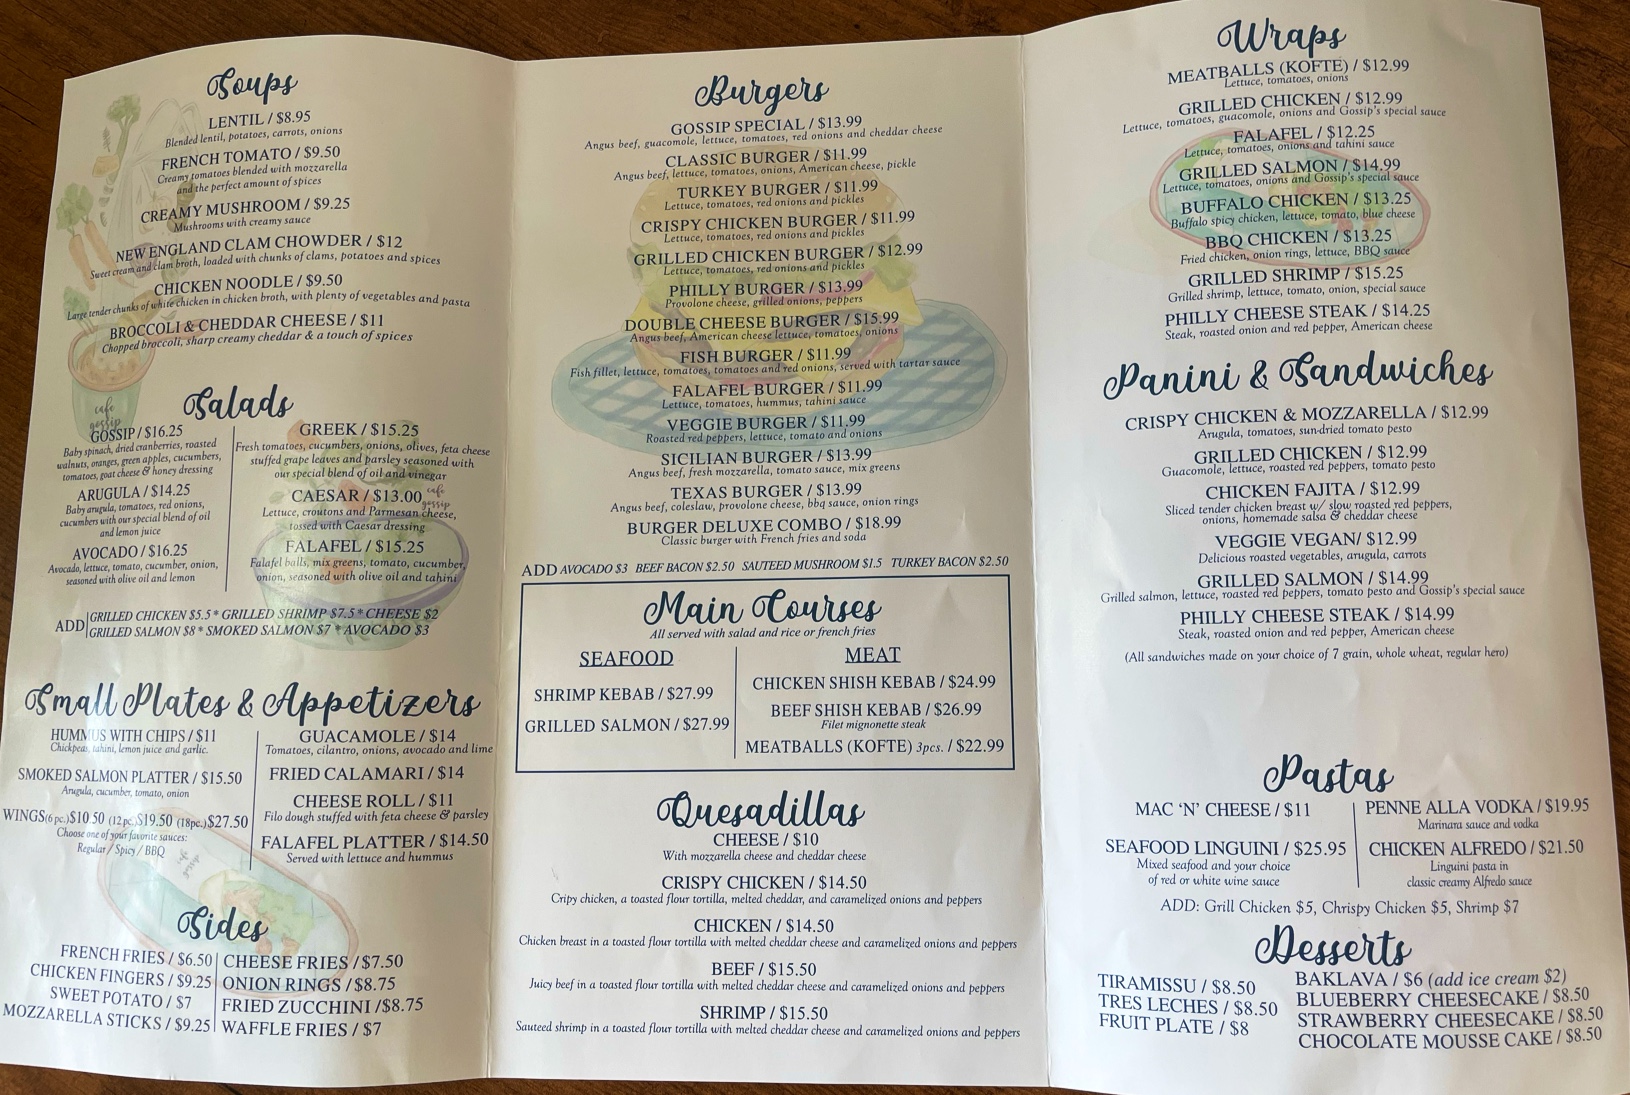 Soups
LENTIL / $8.95
Blended lentil, potatoes, carrots, onions
FRENCH TOMATO / $9.50
Creamy tomatoes blended with mozzarella
and the perfect amount of spices
CREAMY MUSHROOM / $9.25
Mushrooms with creamy sauce
NEW ENGLAND CLAM CHOWDER / $12
Sweet cream and clam broth, loaded with chunks of clams, potatoes and spices
CHICKEN NOODLE / $9.50
Large tender chunks of white chicken in chicken broth, with plenty of vegetables and pasta
BROCCOLI & CHEDDAR CHEESE / $11
Chopped broccoli, sharp creamy cheddar & a touch of spices
cafe
gossip
Salads
GOSSIP / $16.25
Baby spinach, dried cranberries, roasted
walnuts, oranges, green apples, cucumbers,
tomatoes, goat cheese & honey dressing
ARUGULA / $14.25
Baby arugula, tomatoes, red onions,
cucumbers with our special blend of oil
and lemon juice
AVOCADO / $16.25
Avocado, lettuce, tomato, cucumber, onion,
seasoned with olive oil and lemon
GREEK / $15.25
Fresh tomatoes, cucumbers, onions, olives, feta cheese
stuffed grape leaves and parsley seasoned with
our special blend of oil and vinegar
CAESAR / $13.00
cafe
gossip
Lettuce, croutons and Parmesan cheese,
tossed with Caesar dressing
FALAFEL / $15.25
Falafel balls, mix greens, tomato, cucumber,
onion, seasoned with olive oil and tahini
ADD GRILLED CHICKEN $5.5 * GRILLED SHRIMP $7.5 * CHEESE $2
GRILLED SALMON $8 * SMOKED SALMON $7 * AVOCADO $3
Small Plates & Appetizers
HUMMUS WITH CHIPS / $11
Chickpeas, tahini, lemon juice and garlic.
SMOKED SALMON PLATTER / $15.50
Arugula, cucumber, tomato, onion
WINGS(6 pc.)$10 50 (12 pc.)$19.50 (18pc.)$27.50
Choose one of your favorite sauces:
Regular / Spicy / BBQ
cafe
gossip
GUACAMOLE / $14
Tomatoes, cilantro, onions, avocado and lime
FRIED CALAMARI / $14
CHEESE ROLL / $11
Filo dough stuffed with feta cheese & parsley
FALAFEL PLATTER / $14.50
Served with lettuce and hummus
Sides
FRENCH FRIES / $6.50
CHICKEN FINGERS / $9.25
SWEET POTATO / $7
MOZZARELLA STICKS / $9.25
CHEESE FRIES / $7.50
ONION RINGS / $8.75
FRIED ZUCCHINI /$8.75
WAFFLE FRIES / $7
Burgers
GOSSIP SPECIAL / $13.99
Angus beef, guacomole, lettuce, tomatoes, red onions and cheddar cheese
CLASSIC BURGER / $11.99
Angus beef, lettuce, tomatoes, onions, American cheese, pickle
TURKEY BURGER / $11.99
Lettuce, tomatoes, red onions and pickles
CRISPY CHICKEN BURGER / $11.99
Lettuce, tomatoes, red onions and pickles
GRILLED CHICKEN BURGER / $12.99
Lettuce, tomatoes, red onions and pickles
PHILLY BURGER / $13.99
Provolone cheese, grilled onions, peppers
DOUBLE CHEESE BURGER / $15.99
Angus beef, American cheese lettuce, tomatoes, onions
FISH BURGER / $11.99
Fish fillet, lettuce, tomatoes, tomatoes and red onions, served with tartar sauce
FALAFEL BURGER / $11.99
Lettuce, tomatoes, hummus, tahini sauce
VEGGIE BURGER / $11.99
Roasted red peppers, lettuce, tomato and onions
SICILIAN BURGER / $13.99
Angus beef, fresh mozzarella, tomato sauce, mix greens
TEXAS BURGER / $13.99
Angus beef, coleslaw, provolone cheese, bbq sauce, onion rings
BURGER DELUXE COMBO / $18.99
Classic burger with French fries and soda
ADD AVOCADO $3 BEEF BACON $2.50 SAUTEED MUSHROOM $1.5 TURKEY BACON $2.50
Main Courses
All served with salad and rice or french fries
SEAFOOD
SHRIMP KEBAB / $27.99
GRILLED SALMON / $27.99
MEAT
CHICKEN SHISH KEBAB / $24.99
BEEF SHISH KEBAB / $26.99
Filet mignonette steak
MEATBALLS (KOFTE) 3pcs. / $22.99
Quesadillas
CHEESE / $10
With mozzarella cheese and cheddar cheese
CRISPY CHICKEN / $14.50
Cripy chicken, a toasted flour tortilla, melted cheddar, and caramelized onions and peppers
CHICKEN / $14.50
Chicken breast in a toasted flour tortilla with melted cheddar cheese and caramelized onions and peppers
BEEF / $15.50
Juicy beef in a toasted flour tortilla with melted cheddar cheese and caramelized onions and peppers
SHRIMP / $15.50
Sauteed shrimp in a toasted flour tortilla with melted cheddar cheese and caramelized onions and peppers
Wraps
MEATBALLS (KOFTE) / $12.99
Lettuce, tomatoes, onions
GRILLED CHICKEN / $12.99
Lettuce, tomatoes, guacomole, onions and Gossip's special sauce
FALAFEL / $12.25
Lettuce, tomatoes, onions and tahini sauce
GRILLED SALMON / $14.99
Lettuce, tomatoes, onions and Gossip's special sauce
BUFFALO CHICKEN / $13.25
Buffalo spicy chicken, lettuce, tomato, blue cheese
BBQ CHICKEN / $13.25
Fried chicken, onion rings, lettuce, BBQ sauce
GRILLED SHRIMP / $15.25
Grilled shrimp, lettuce, tomato, onion, special sauce
PHILLY CHEESE STEAK / $14.25
Steak, roasted onion and red pepper, American cheese
Panini & Sandwiches
CRISPY CHICKEN & MOZZARELLA / $12.99
Arugula, tomatoes, sun-dried tomato pesto
GRILLED CHICKEN / $12.99
Guacomole, lettuce, roasted red peppers, tomato pesto
CHICKEN FAJITA / $12.99
Sliced tender chicken breast w/ slow roasted red peppers,
onions, homemade salsa & cheddar cheese
VEGGIE VEGAN/ $12.99
Delicious roasted vegetables, arugula, carrots
GRILLED SALMON / $14.99
Grilled salmon, lettuce, roasted red peppers, tomato pesto and Gossip's special sauce
PHILLY CHEESE STEAK / $14.99
Steak, roasted onion and red pepper, American cheese
(All sandwiches made on your choice of 7 grain, whole wheat, regular hero)
Pastas
MAC 'N' CHEESE / $11
SEAFOOD LINGUINI / $25.95
Mixed seafood and your choice
of red or white wine sauce
PENNE ALLA VODKA / $19.95
Marinara sauce and vodka
CHICKEN ALFREDO / $21.50
Linguini pasta in
classic creamy Alfredo sauce
ADD: Grill Chicken $5, Chrispy Chicken $5, Shrimp $7
Desserts
TIRAMISSU / $8.50
TRES LECHES / $8.50
FRUIT PLATE / $8
BAKLAVA / $6 (add ice cream $2)
BLUEBERRY CHEESECAKE / $8.50
STRAWBERRY CHEESECAKE / $8.50
CHOCOLATE MOUSSE CAKE / $8.50